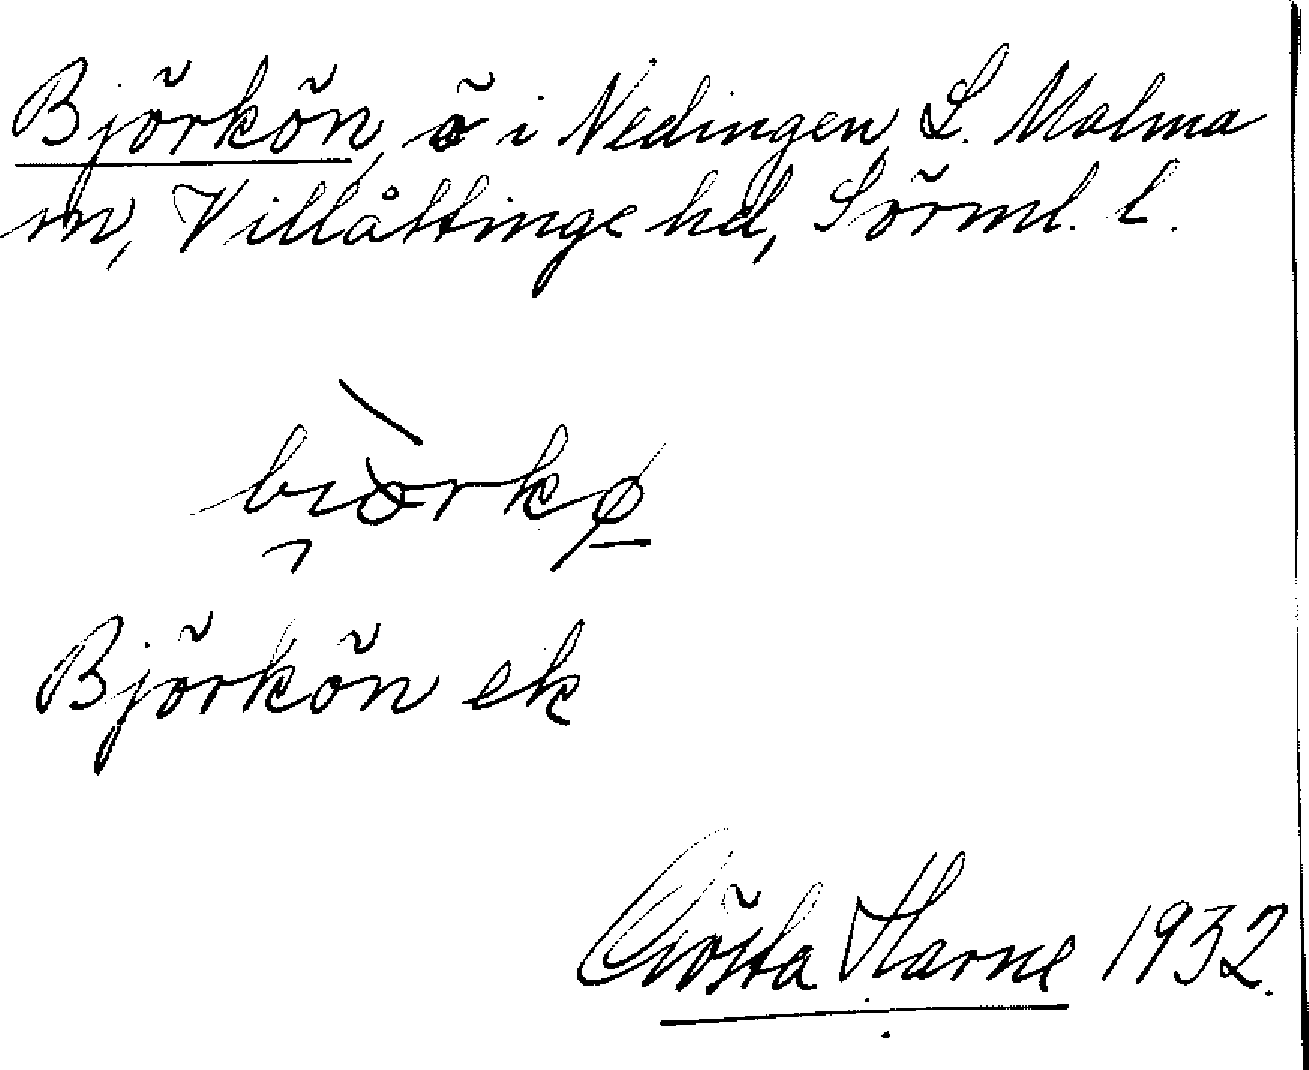 Björkön, ö i Nedingen, L. Malma
sn, Villåttinge hd, Sörml. l.
bi̯òrkø
Björkön ek
Gösta Harne 1932.